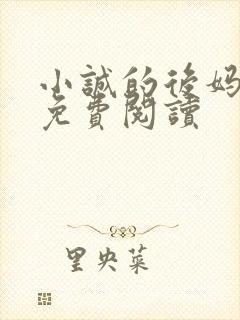 小誠的後妈
免費閱讀
里央菜